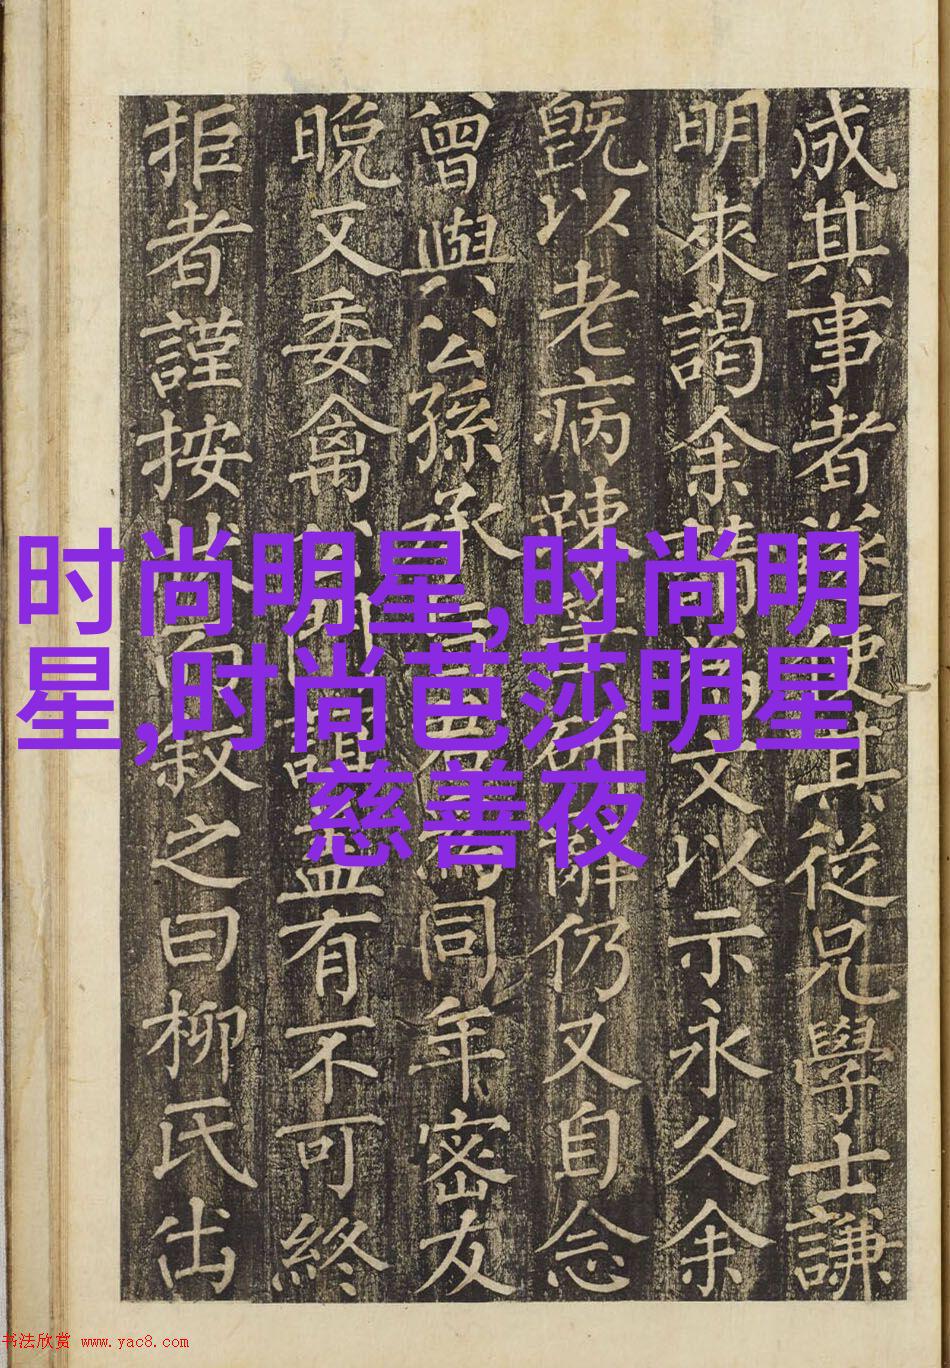 成其事者遂使其從兄學士謙
明來謁余請文以示永久余
既以老病辭仍又自念
曾與公孫承同年密友
晚又委禽有不可終
拒者謹按狀而叙之曰柳氏出
时尚明星,时尚明
星,时尚芭莎明星
慈善夜
书法欣赏 www.yac8.com